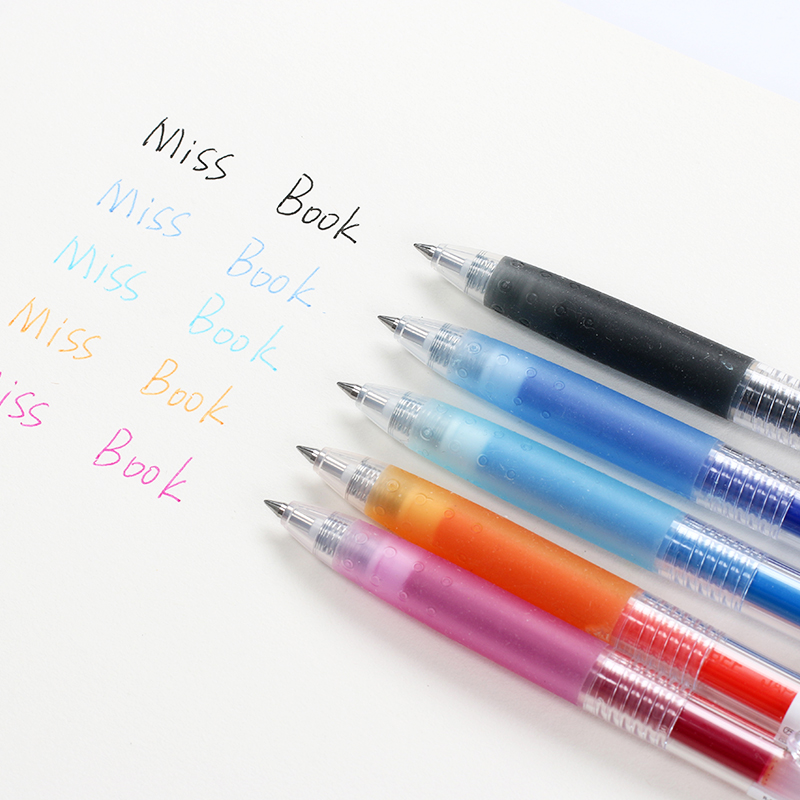 Miss Book
Miss Book
Miss Book
Miss Book
iss Book